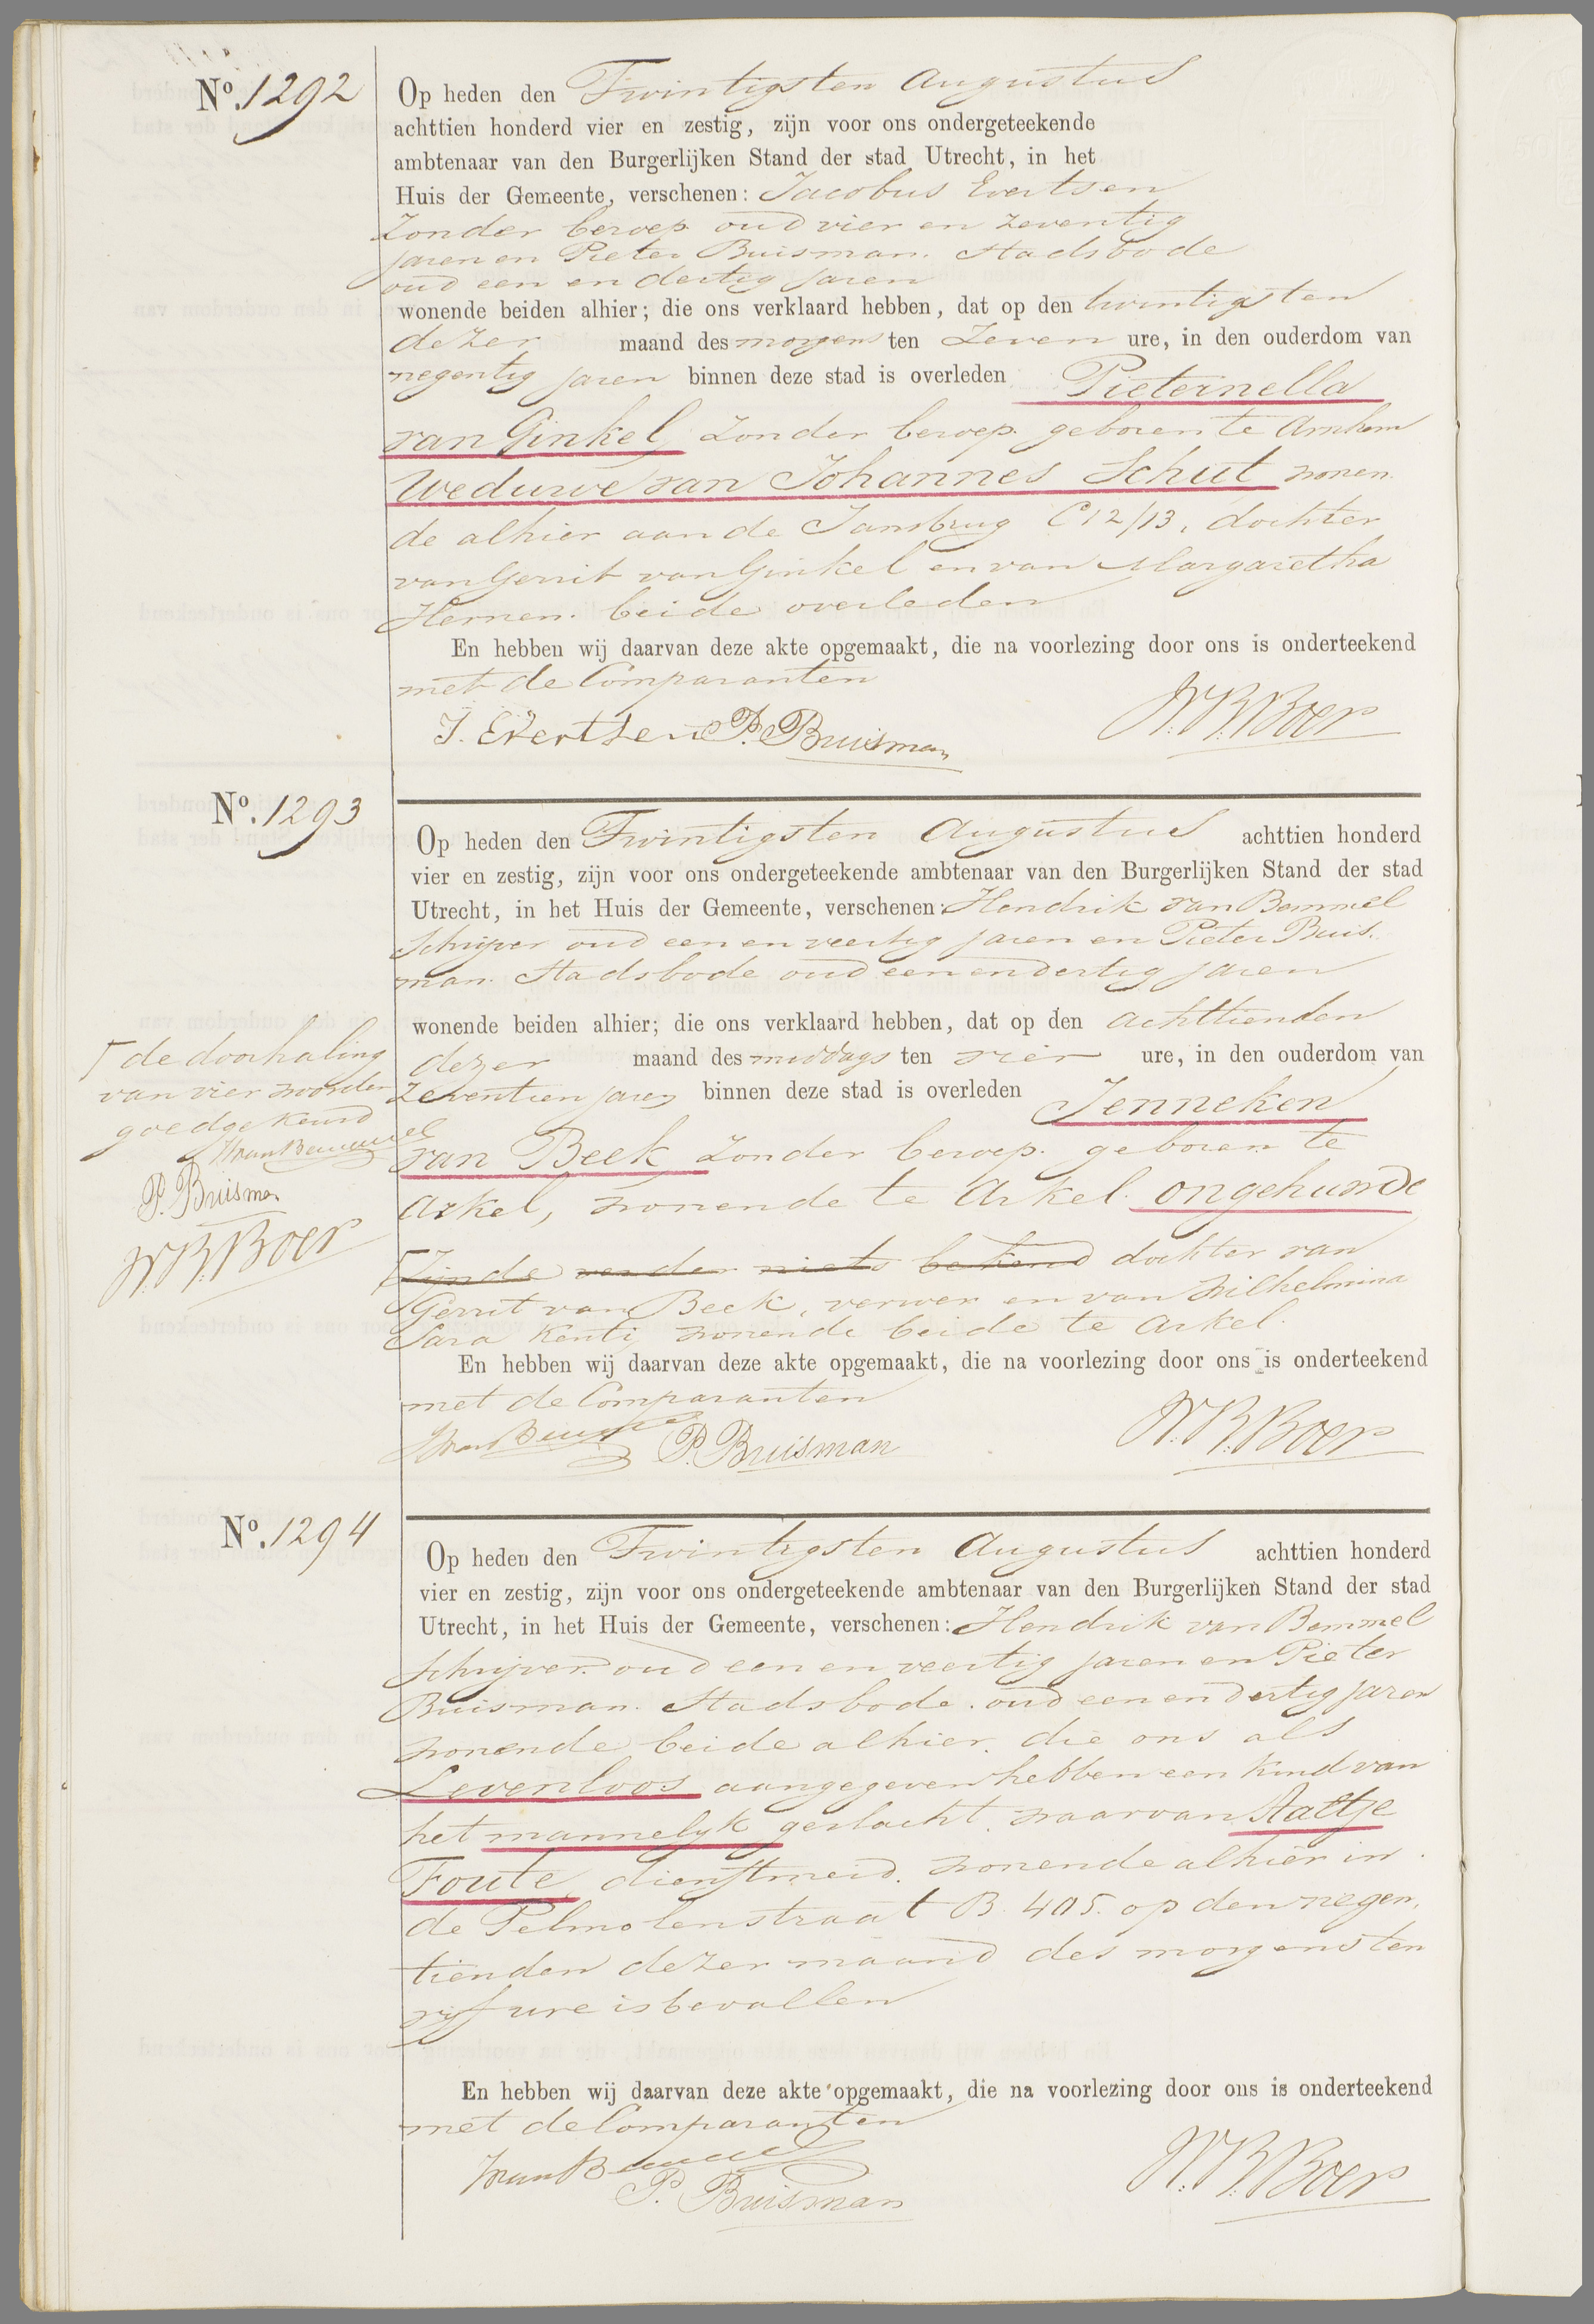 No. 1292
Op heden den Twintigsten Augustus
achttien honderd vier en zestig, zijn voor ons ondergeteekende
ambtenaar van den Burgerlijken Stand der stad Utrecht, in het
Huis der Gemeente, verschenen: Jacobus Evertsen
zonder beroep oud vier en zeventig
jaren en Pieter Buisman. Stadsbode
oud een en dertig jaren
wonende beiden alhier; die ons verklaard hebben, dat op den twintigsten
dezer maand des morgens ten zeven ure, in den ouderdom van
negentig jaren binnen deze stad is overleden Pieternella
van Ginkel, zonder beroep. geboren te Arnhem
Weduwe van Johannes Schut wonen
de alhier aan de Jansbrug C 12/13, dochter
van Gerrit van Ginkel en van Margaretha
Hernen. beide overleden
En hebben wij daarvan deze akte opgemaakt, die na voorlezing door ons is onderteekend
met de Comparanten
J. Evertsen P. Buisman W.B. Boer
No. 1293
Op heden den Twintigsten Augustus achttien honderd
vier en zestig, zijn voor ons ondergeteekende ambtenaar van den Burgerlijken Stand der stad
Utrecht, in het Huis der Gemeente, verschenen: Hendrik van Bemmel
Schrijver oud een en veertig jaren en Pieter Buis.
man. Stadsbode oud een en dertig jaren
wonende beiden alhier; die ons verklaard hebben, dat op den achttienden
dezer maand des middags ten vier ure, in den ouderdom van
zeventien jaren binnen deze stad is overleden Jenneken
van Beek zonder beroep. geboren te
Arkel, wonende te Arkel. ongehuwde
zijnde verder niets bekend dochter van
Gerrit van Beek, verwer en van Wilhelmina
Sara wonende beide te Arkel.
En hebben wij daarvan deze akte opgemaakt, die na voorlezing door ons is onderteekend
met de Comparanten
HvanBemmel P. Buisman W.B. Boer
de doorhaling
van vier woorden
goedgekeurd
HvanBemmel
P. Buisman
W.B. Boer
No. 1294
Op heden den Twintigsten Augustus achttien honderd
vier en zestig, zijn voor ons ondergeteekende ambtenaar van den Burgerlijken Stand der stad
Utrecht, in het Huis der Gemeente, verschenen: Hendrik van Bemmel
Schrijver. oud een en veertig jaren en Pieter
Buisman. Stadsbode. oud een en dertig jaren
wonende beide alhier. die ons als
Levenloos aangegeven hebben een kind van
het mannelyk geslacht. waarvan Aaltje
Foute, dienstmeid. wonende alhier in
de Pelmolenstraat B. 405. op den negen.
tienden dezer maand des morgens ten
vijf ure is bevallen
En hebben wij daarvan deze akte opgemaakt, die na voorlezing door ons is onderteekend
met de Comparanten
HvanBemmel
P. Buisman W.B. Boer